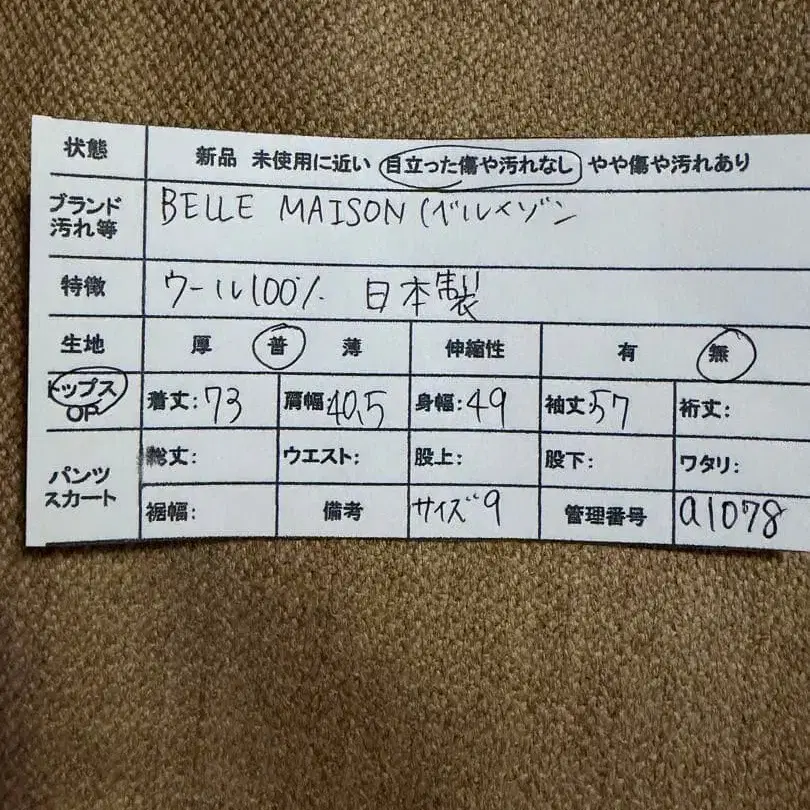 状態 新品 未使用に近い 目立った傷や汚れなし やや傷や汚れあり
ブランド 汚れ等 BELLE MAISON (ベルメゾン
特徴 ウール100% 日本製
生地 厚 普 薄 伸縮性 有 無
トップス OP 着丈:73 肩幅:40.5 身幅:49 袖丈:57 裄丈:
パンツ スカート 総丈: ウエスト: 股上: 股下: ワタリ:
裾幅: 備考 サイズ9 管理番号 a1078